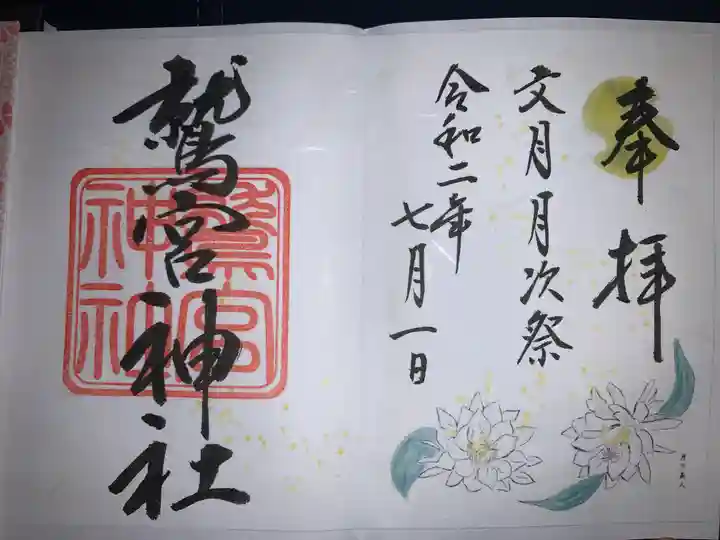 奉拝
文月月次祭
令和二年
七月一日
鷲宮神社
鷲宮
神社
月下美人